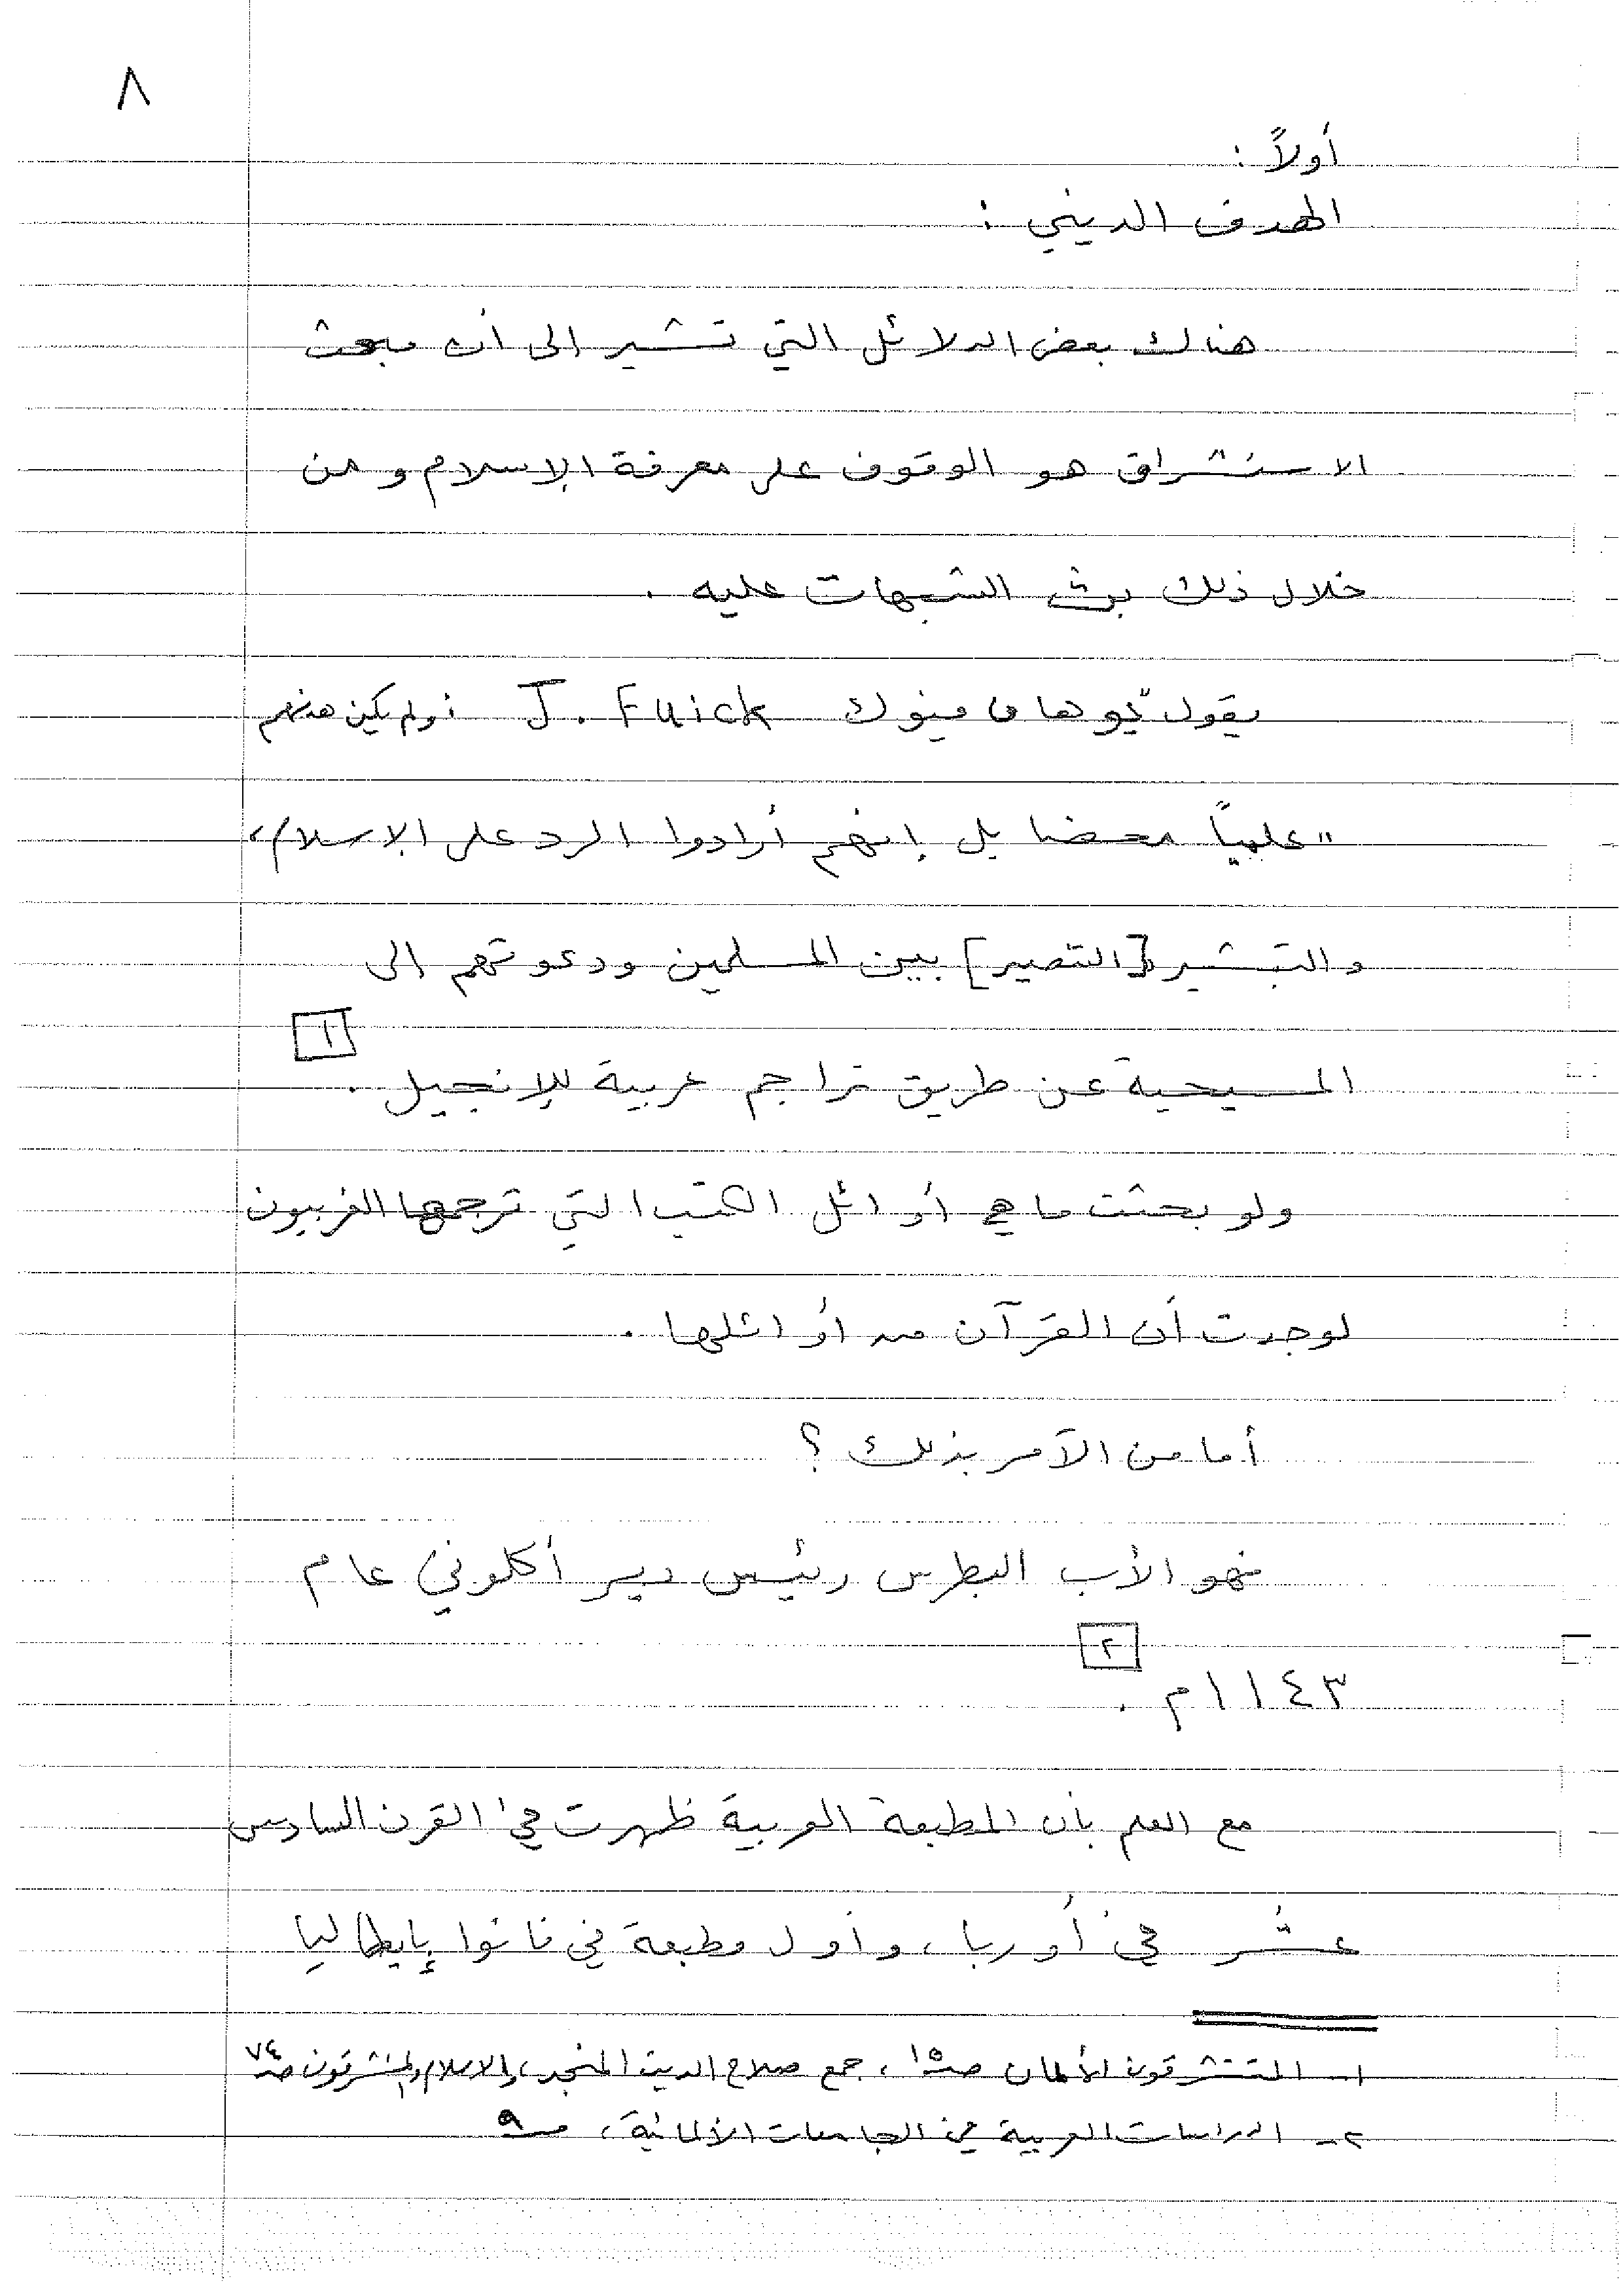 ٨
أولاً :
الهدف الديني :
هناك بعض الدلائل التي تشير إلى أن مبعث
الاستشراق هو الوقوف على معرفة الإسلام و من
خلال ذلك بث الشبهات عليه .
يقول يوهان فيوك J. Fuick : ولم يكن هدفهم
"علمياً محضا بل إنهم أرادوا الرد على الإسلام،
والتبشير [التنصير] بين المسلمين ودعوتهم إلى
المسيحية عن طريق تراجم عربية للإنجيل . [١]
ولو بحثت ما هي أوائل الكتب التي ترجمها الغربيون
لوجدت أن القرآن من أوائلها .
أما من الآمر بذلك ؟
فهو الأب البطرس رئيس دير أكلوني عام
١١٤٣م . [٢]
مع العلم بأن المطبعة العربية ظهرت في القرن السادس
عشر في أوربا ، وأول مطبعة في فانوا بإيطاليا
١ـ المستشرقون الألمان صـ١٥ ، جمع صلاح الدين المنجد ، والإسلام والمستشرقون صـ٧٤
٢ـ الدراسات العربية في الجامعات الألمانية ، صـ٩